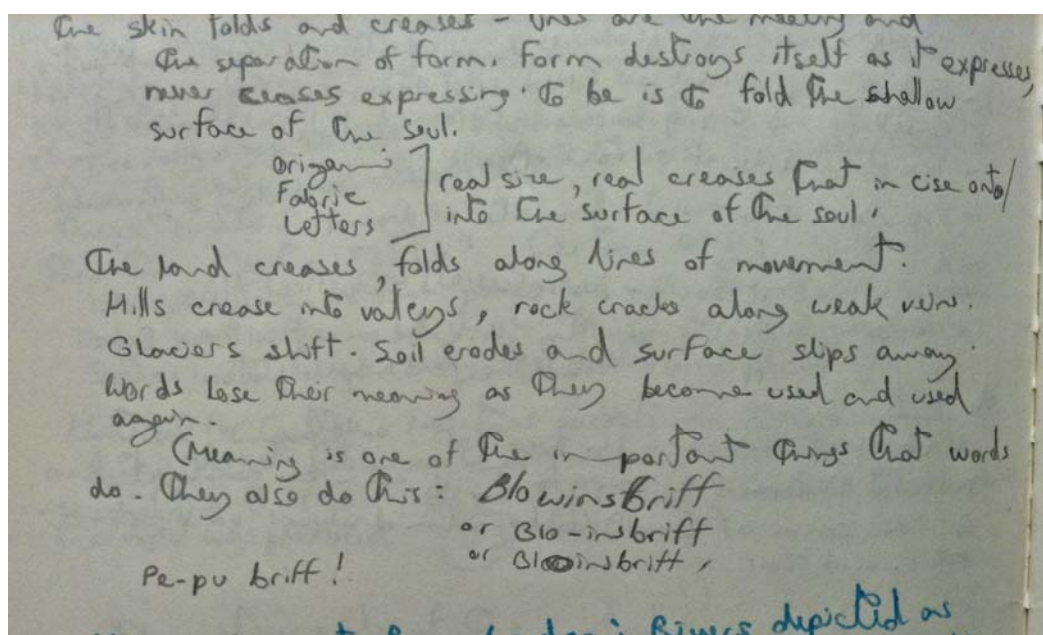 The skin folds and creases - lines are the meeting and
the separation of form. Form destroys itself as it expresses,
never ceases expressing. To be is to fold the shallow
surface of the soul.
origami
Fabric
Letters
real size, real creases that in cise onto/
into the surface of the soul.
The land creases, folds along lines of movement.
Hills crease into valleys, rock cracks along weak veins.
Glaciers shift. Soil erodes and surface slips away.
Words lose their meaning as they become used and used
again.
(Meaning is one of the important things that words
do. They also do this: Blowinsbriff
or Blo-insbriff
or Bloinsbriff,
Pe-pu briff!
Rivers depicted as